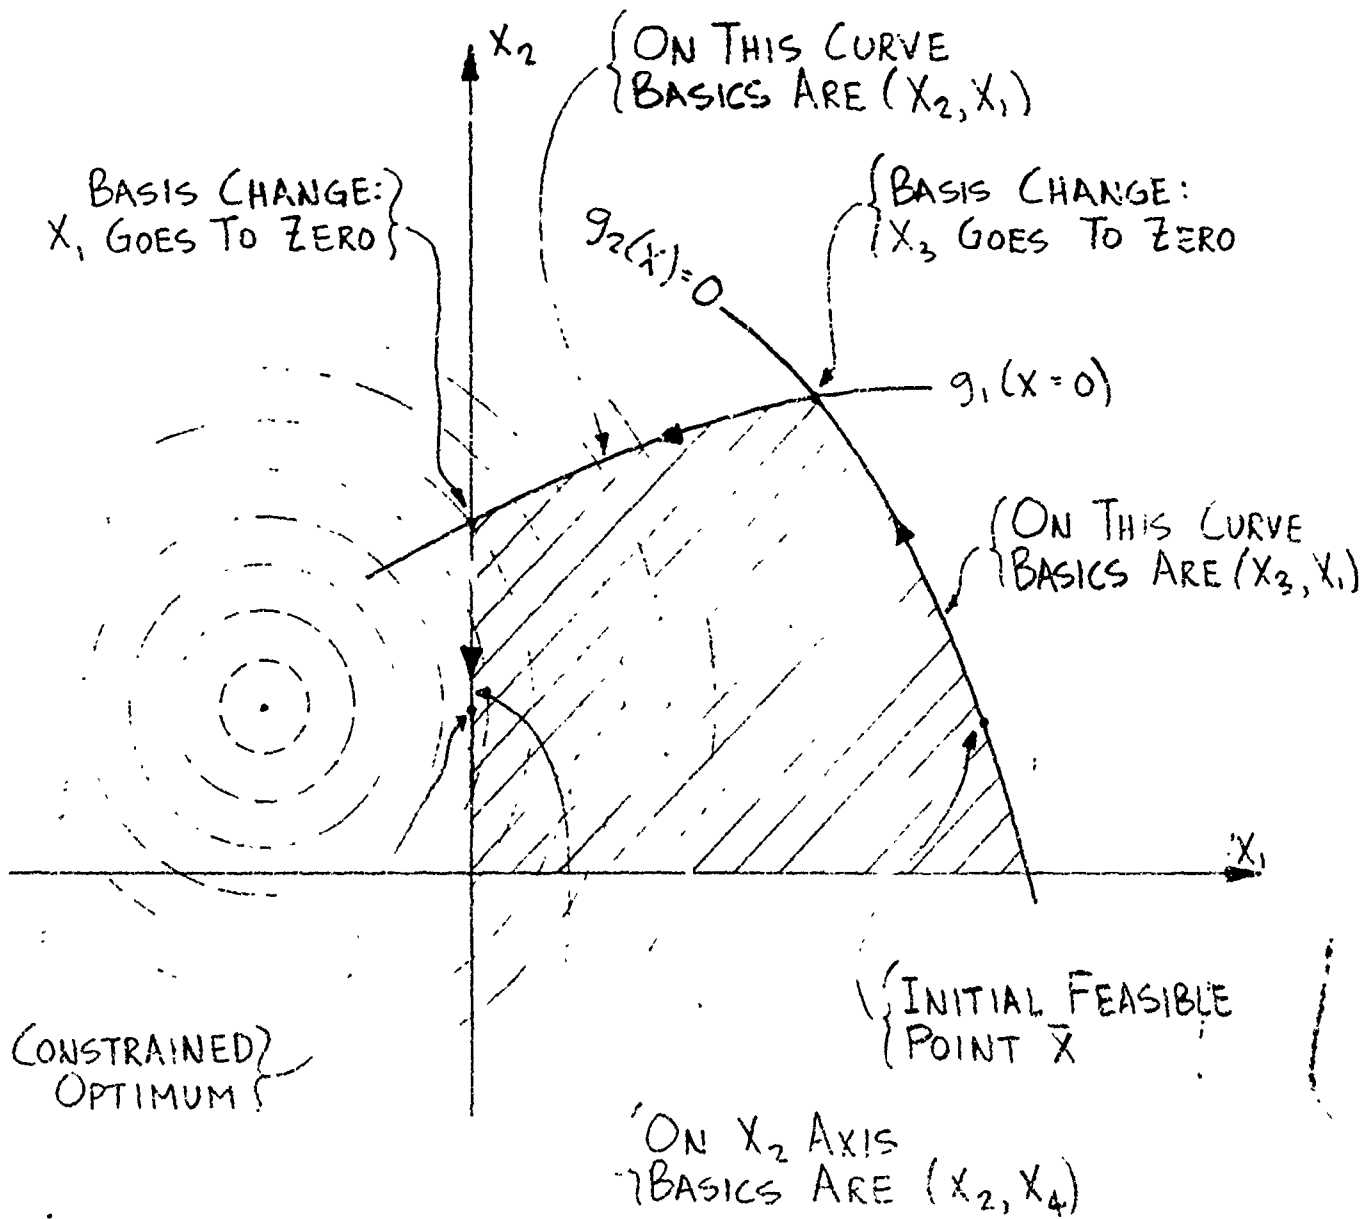 X₂
{ON THIS CURVE
BASICS ARE (X₂, X₁)
BASIS CHANGE:}
X₁ GOES TO ZERO
{BASIS CHANGE:
X₃ GOES TO ZERO
g₂(x)=0
g₁(x=0)
{ON THIS CURVE
BASICS ARE (X₃, X₁)
X₁
{INITIAL FEASIBLE
POINT X̄
CONSTRAINED}
OPTIMUM
ON X₂ AXIS
BASICS ARE (X₂, X₄)